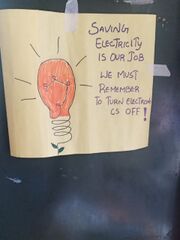 SAVING
ELECTRICITY
IS OUR JOB
WE MUST
REMEMBER
TO TURN ELECTRONI
CS OFF!